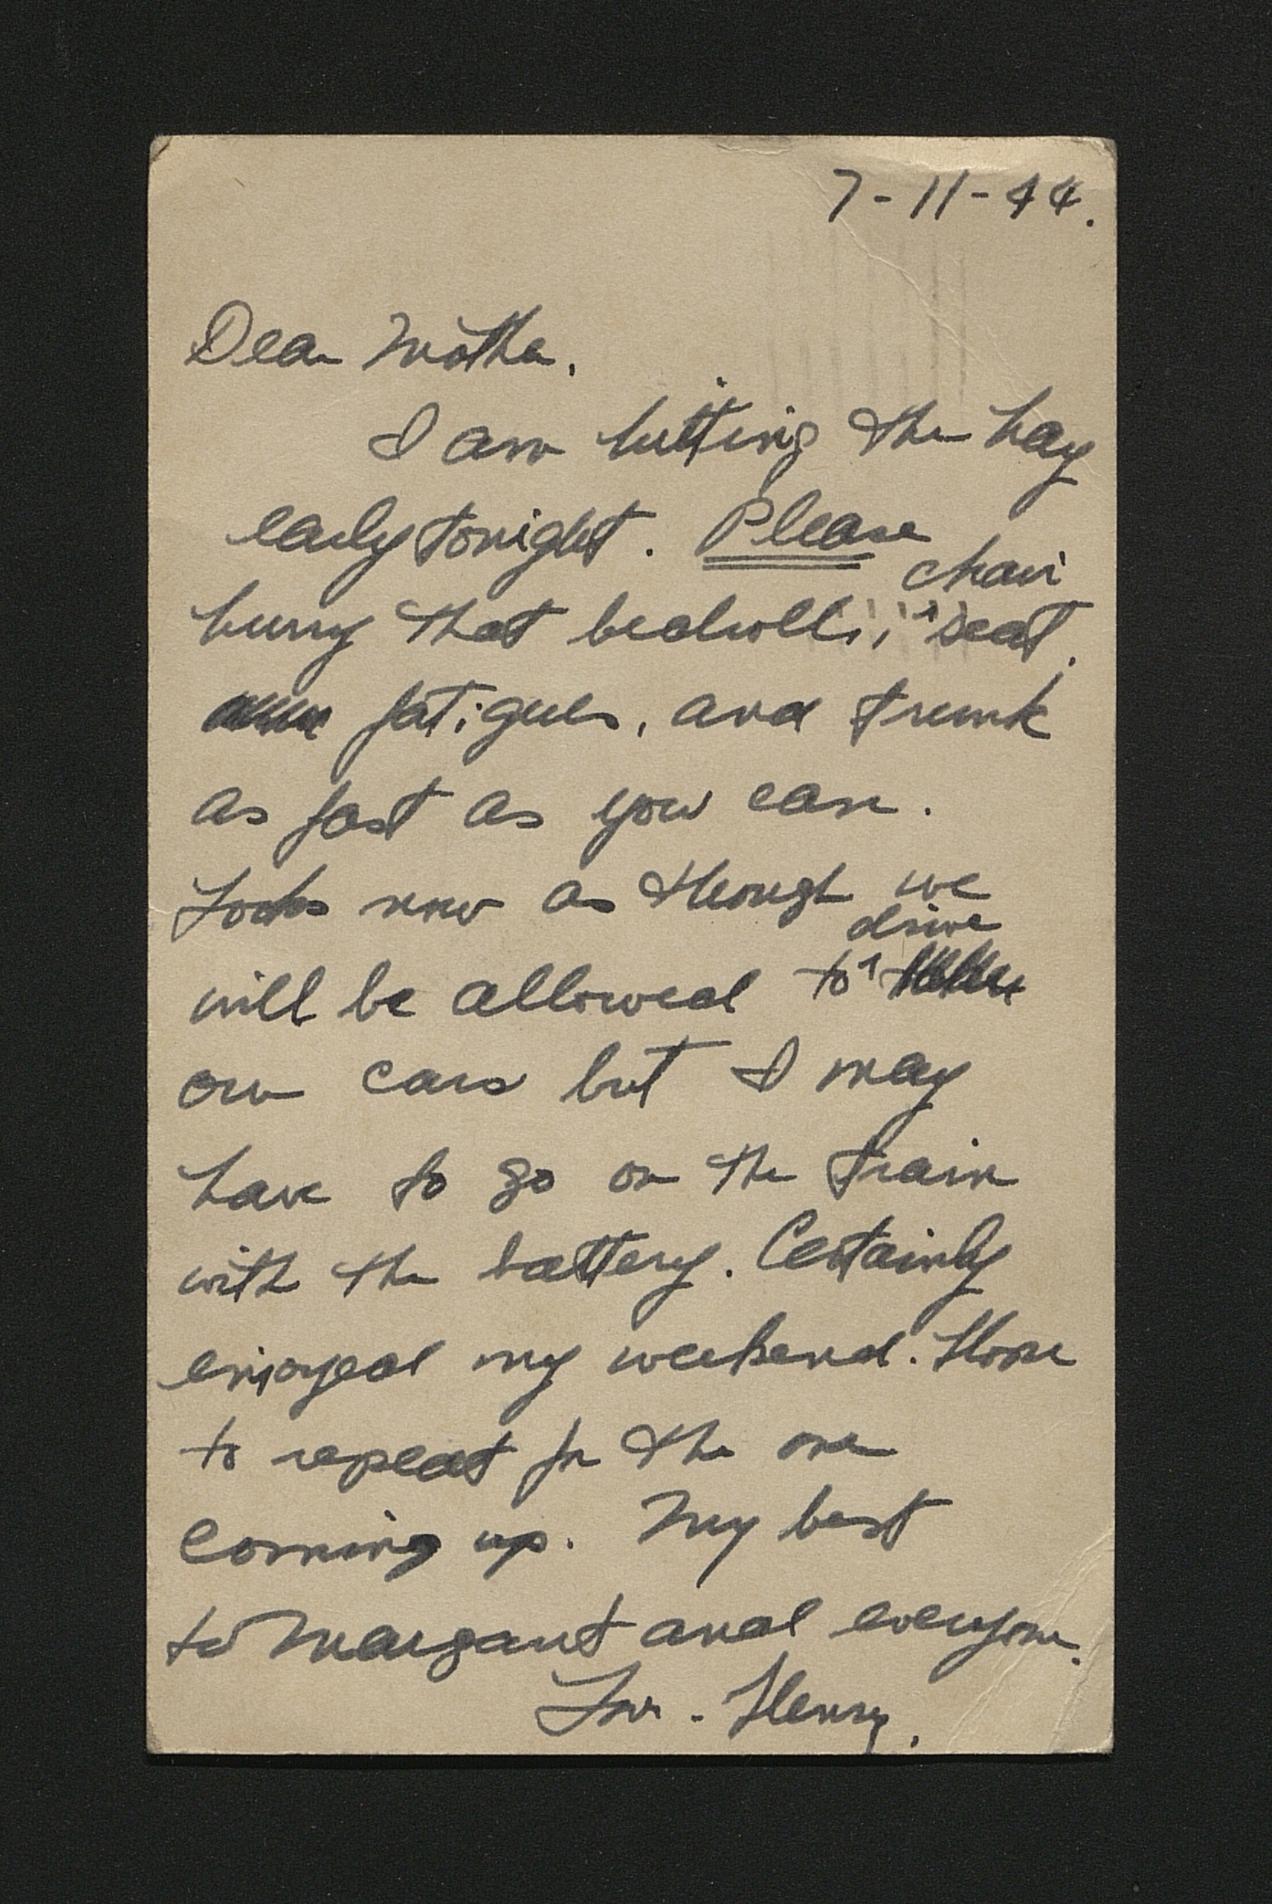 7-11-44.
Dear Mother,
I am hitting the hay
early tonight. Please
hurry that bedroll, chair seat,
fatigues, and trunk
as fast as you can.
Looks now as though we
will be allowed to drive
our cars but I may
have to go on the train
with the battery. Certainly
enjoyed my weekend. Hope
to repeat for the one
coming up. My best
to Margaret and everyone.
Love - Henry.